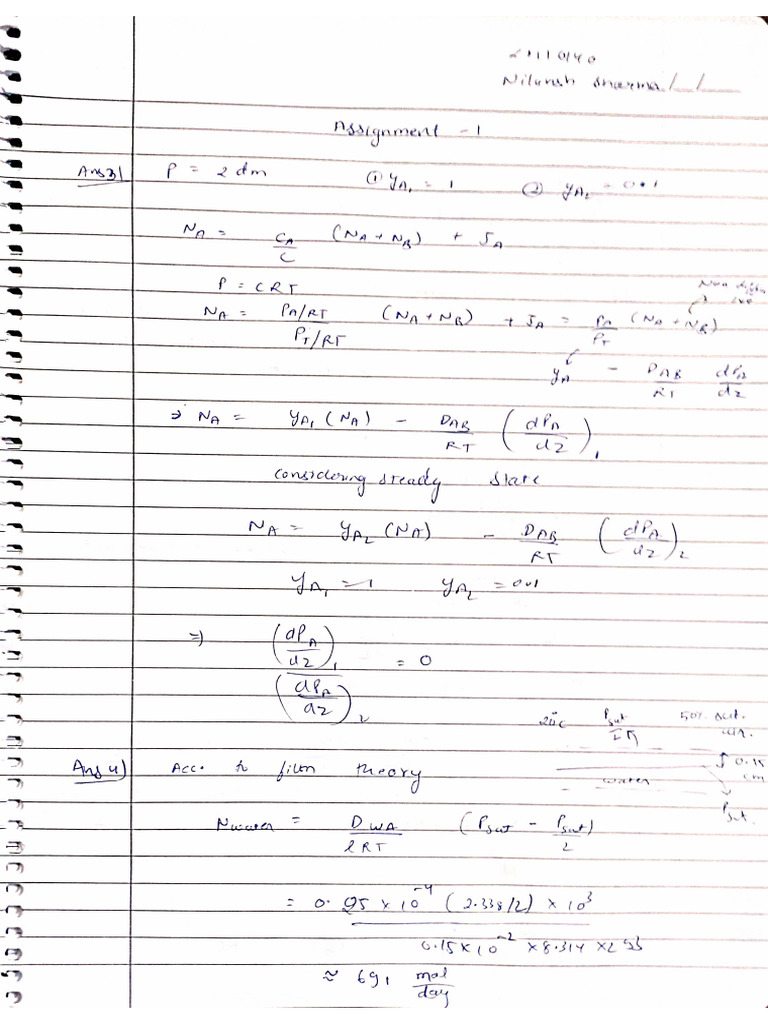 21110140
Nilansh Sharma / /
Assignment - 1
Ans 3) P = 2 dm ① yA1 = 1 ② yA2 = 0.1
NA = CA/C (NA + NB) + JA
P = CRT
NA = PA/RT / PT/RT (NA + NB) + JA = PA/PT (NA + NB)
yA - DAB/RT dPA/dz
⇒ NA = yA1 (NA) - DAB/RT (dPA/dz)1
Considering steady state
NA = yA2 (NA) - DAB/RT (dPA/dz)2
yA1 = 1 yA2 = 0.1
⇒ (dPA/dz)1 / (dPA/dz)2 = 0
20°C Psat/2 50% sat. air.
Ans 4) Acc. to film theory
water 0.15 cm
Psat.
Nwater = DWA/lRT (Psat - Psat/2)
= 0.25 × 10^-4 (2.338/2) × 10^3
0.15 × 10^-2 × 8.314 × 293
≈ 691 mol/day